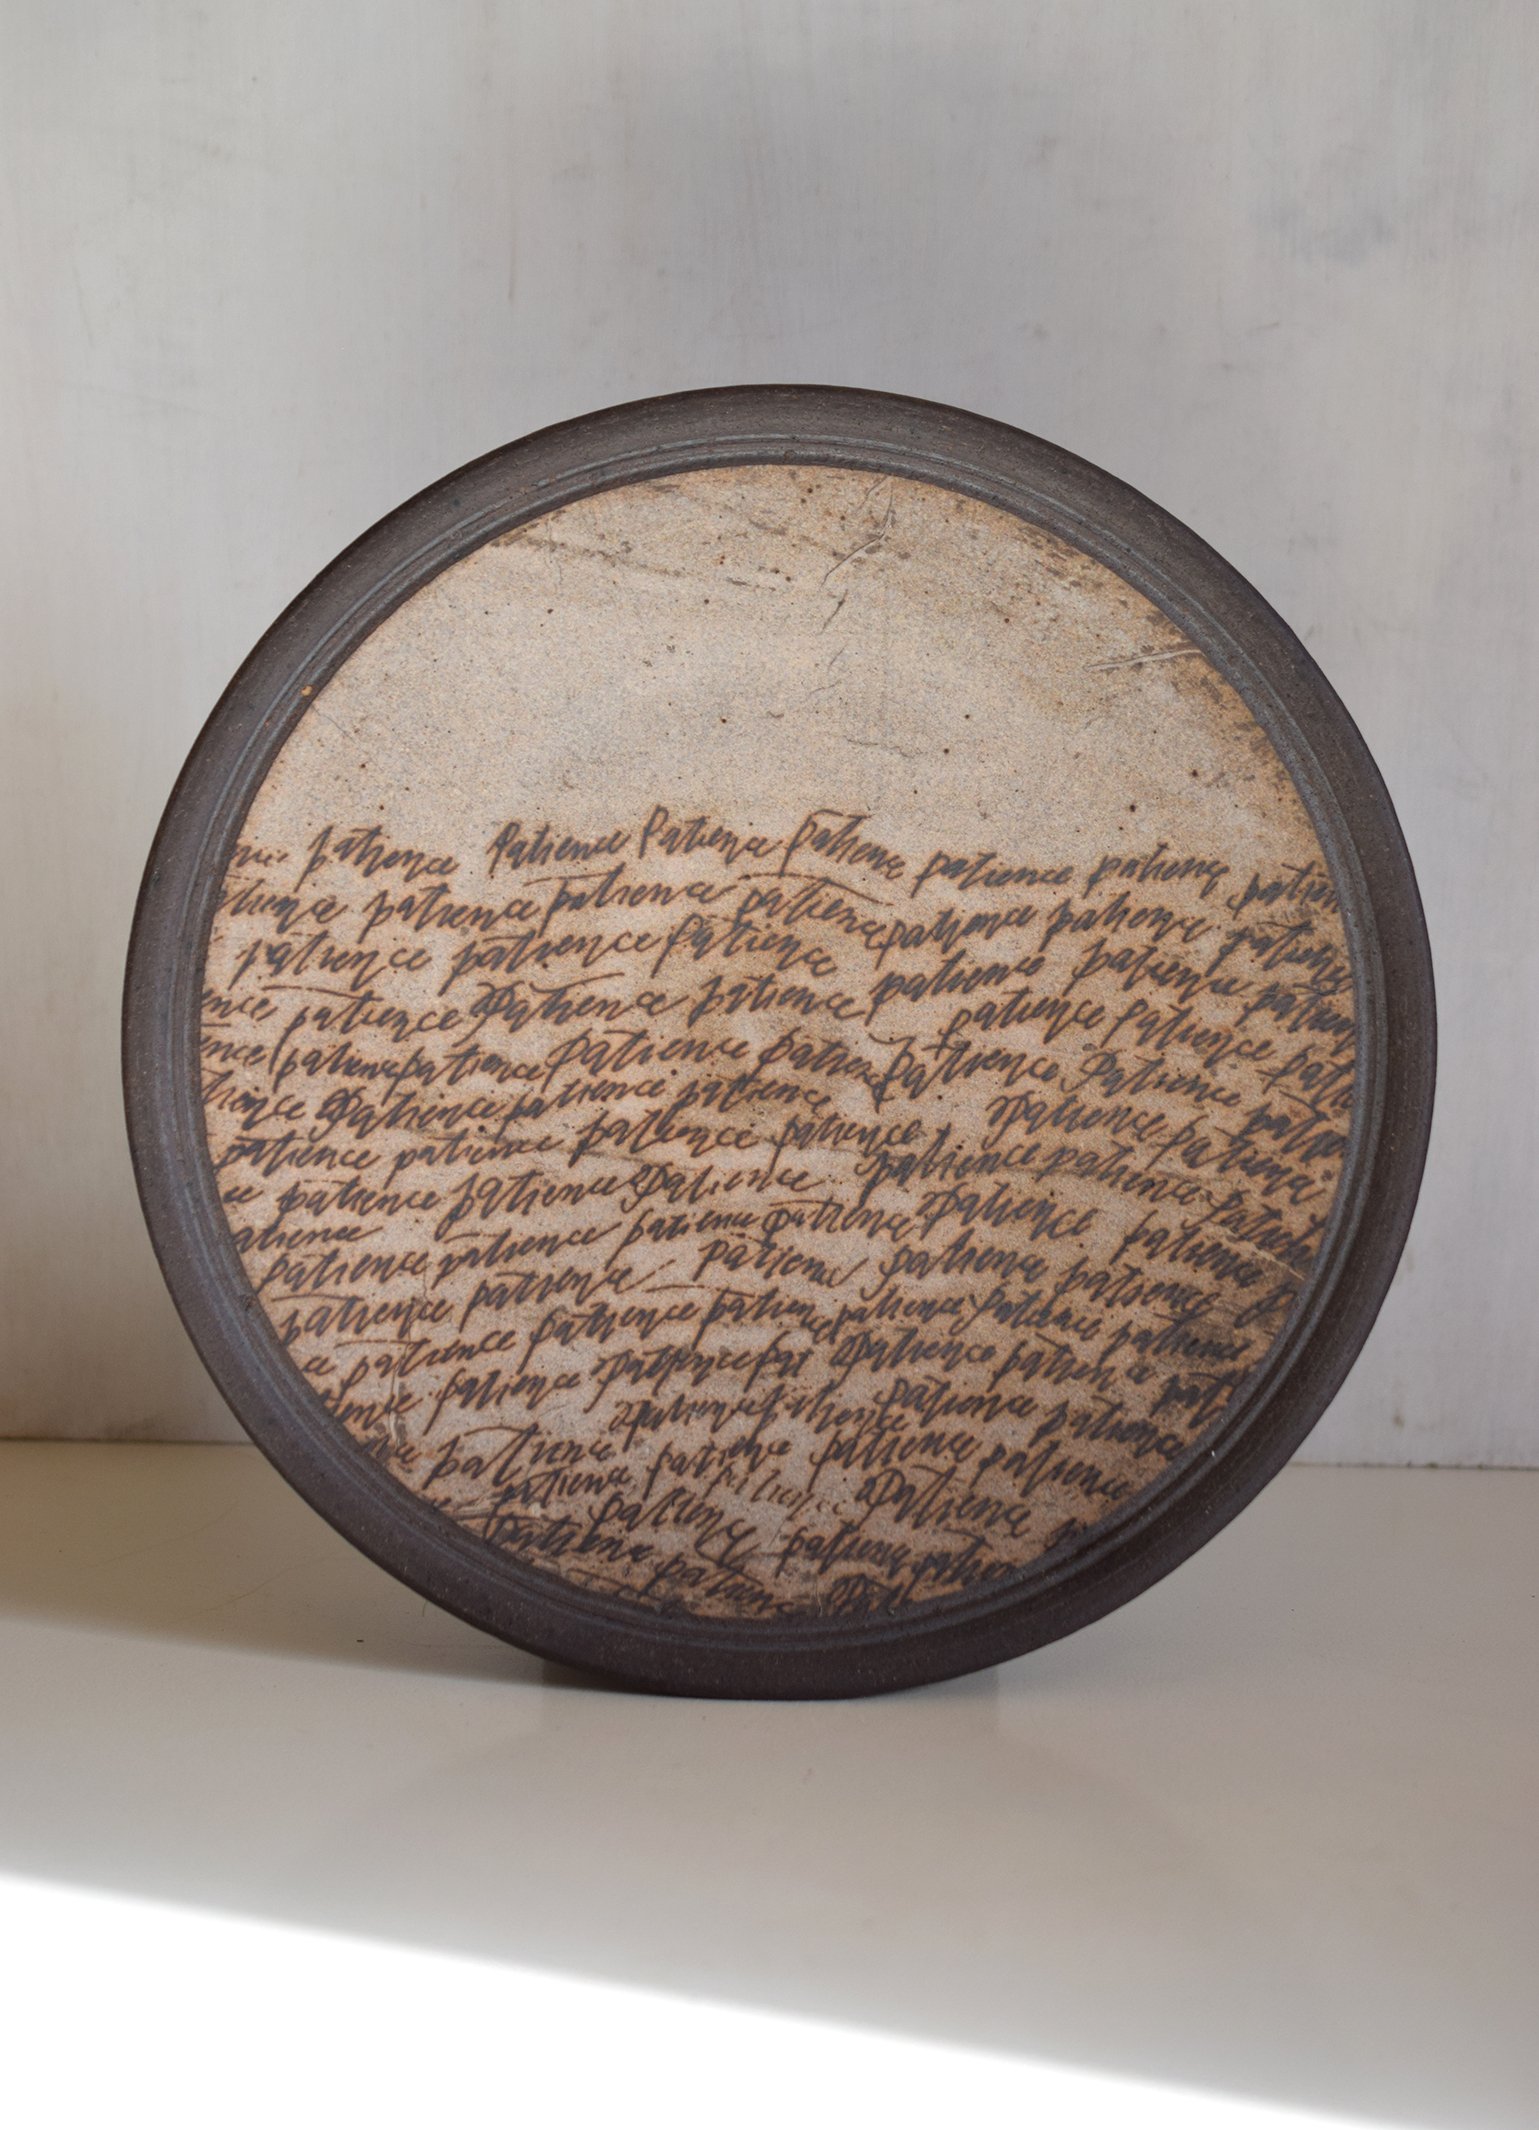 patience Patience Patience patience patience patience
patience patience patience patience patience patience
patience patience patience patience patience patience
patience Patience patience patience patience patience
patience patience Patience patience patience Patience
Patience patience patience Patience patience
patience patience patience patience patience patience
patience patience Patience Patience patience
patience patience patience patience patience
patience patience patience patience patience
patience patience patience patience patience patience
patience Patience Patience patience
patience Patience patience patience patience
patience patience patience patience
patience patience Patience
patience patience